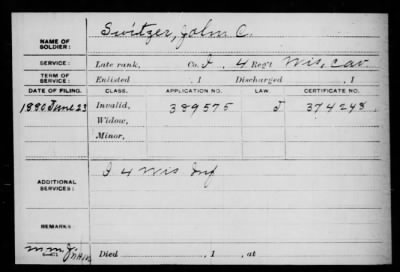 NAME OF SOLDIER: Switzer, John C.
SERVICE: Late rank, Co. I, 4 Reg't Wis. Cav.
TERM OF SERVICE: Enlisted , 1 Discharged , 1
DATE OF FILING. CLASS. APPLICATION NO. LAW. CERTIFICATE NO.
1880 June 23 Invalid, 389575 J 374248
Widow,
Minor,
ADDITIONAL SERVICES: I 4 Wis Inf
REMARKS:
Died , 1 , at